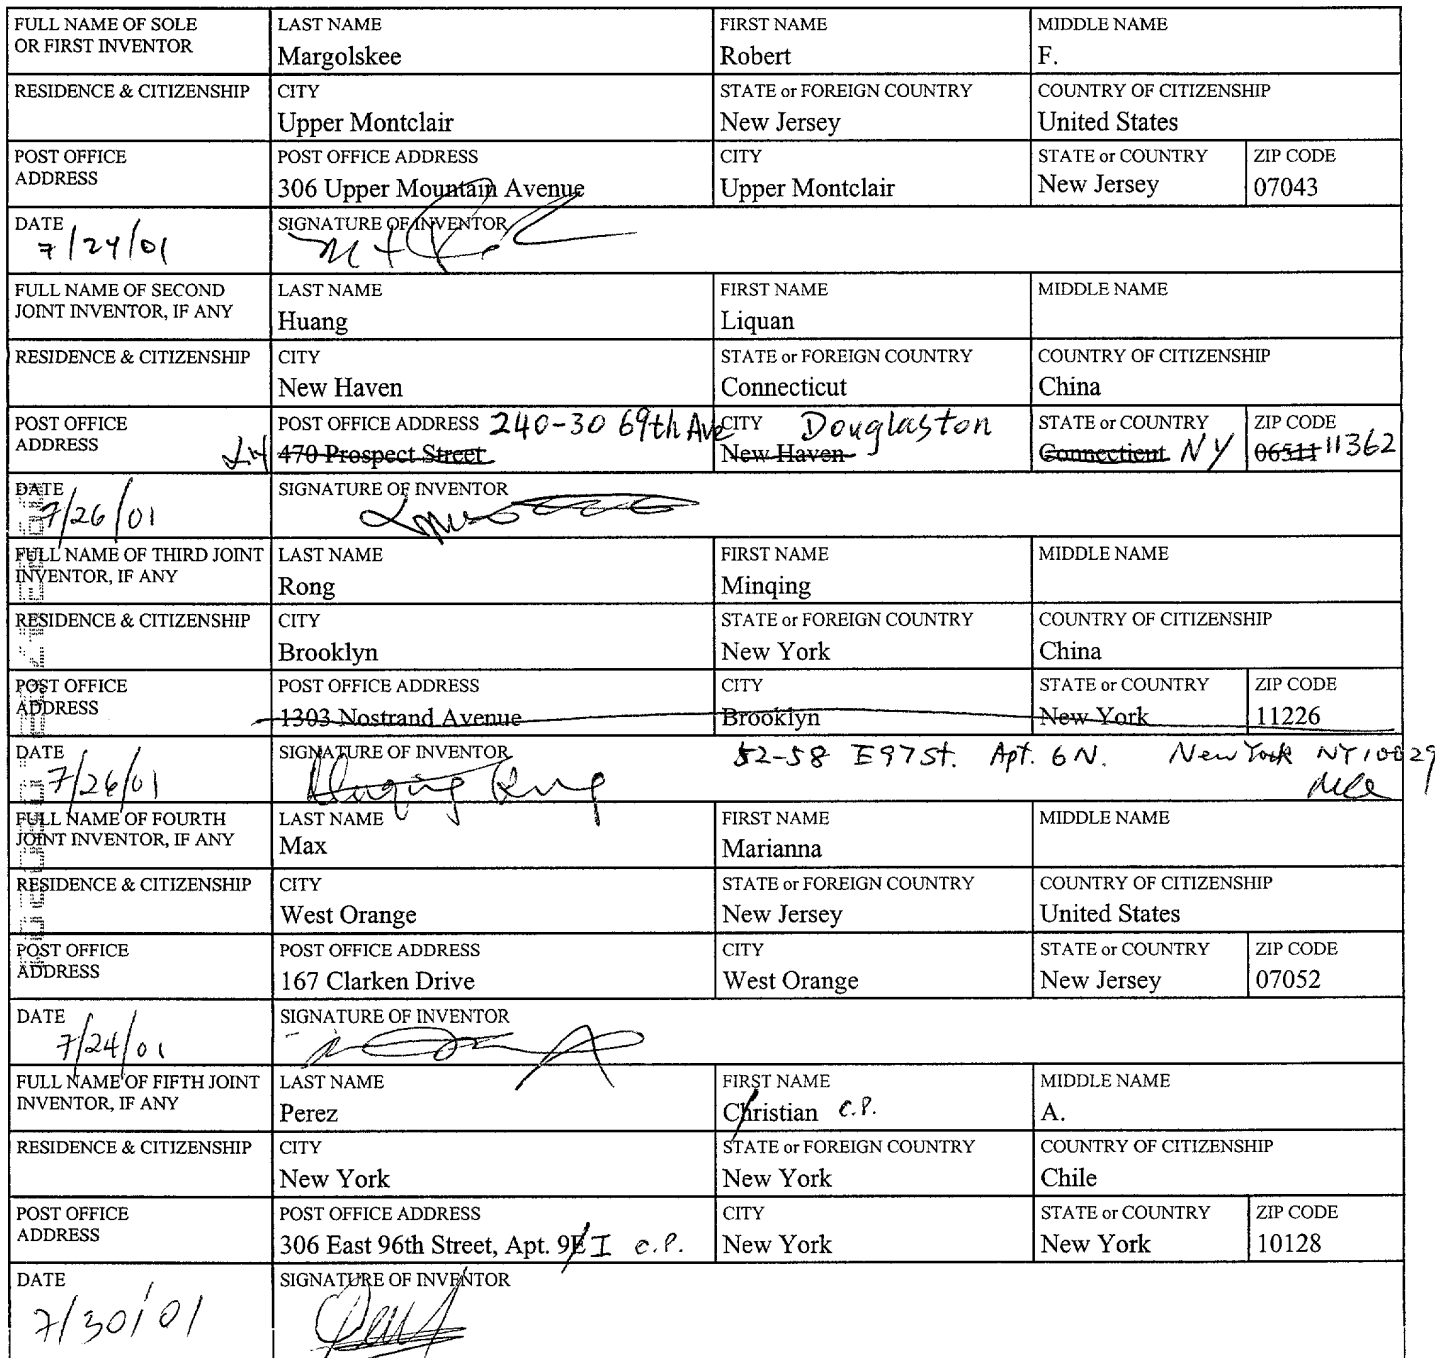 FULL NAME OF SOLE OR FIRST INVENTOR
LAST NAME Margolskee
FIRST NAME Robert
MIDDLE NAME F.
RESIDENCE & CITIZENSHIP
CITY Upper Montclair
STATE or FOREIGN COUNTRY New Jersey
COUNTRY OF CITIZENSHIP United States
POST OFFICE ADDRESS
POST OFFICE ADDRESS 306 Upper Mountain Avenue
CITY Upper Montclair
STATE or COUNTRY New Jersey
ZIP CODE 07043
DATE 7/24/01
SIGNATURE OF INVENTOR
FULL NAME OF SECOND JOINT INVENTOR, IF ANY
LAST NAME Huang
FIRST NAME Liquan
MIDDLE NAME
RESIDENCE & CITIZENSHIP
CITY New Haven
STATE or FOREIGN COUNTRY Connecticut
COUNTRY OF CITIZENSHIP China
POST OFFICE ADDRESS
POST OFFICE ADDRESS 240-30 69th Ave
470 Prospect Street
CITY Douglaston
New Haven
STATE or COUNTRY
Connecticut NY
ZIP CODE
06511 11362
DATE 7/26/01
SIGNATURE OF INVENTOR
FULL NAME OF THIRD JOINT INVENTOR, IF ANY
LAST NAME Rong
FIRST NAME Minqing
MIDDLE NAME
RESIDENCE & CITIZENSHIP
CITY Brooklyn
STATE or FOREIGN COUNTRY New York
COUNTRY OF CITIZENSHIP China
POST OFFICE ADDRESS
POST OFFICE ADDRESS 1303 Nostrand Avenue
CITY Brooklyn
STATE or COUNTRY New York
ZIP CODE 11226
DATE 7/26/01
SIGNATURE OF INVENTOR Minqing Rong
52-58 E97St. Apt. 6N. New York NY10029
FULL NAME OF FOURTH JOINT INVENTOR, IF ANY
LAST NAME Max
FIRST NAME Marianna
MIDDLE NAME
RESIDENCE & CITIZENSHIP
CITY West Orange
STATE or FOREIGN COUNTRY New Jersey
COUNTRY OF CITIZENSHIP United States
POST OFFICE ADDRESS
POST OFFICE ADDRESS 167 Clarken Drive
CITY West Orange
STATE or COUNTRY New Jersey
ZIP CODE 07052
DATE 7/24/01
SIGNATURE OF INVENTOR
FULL NAME OF FIFTH JOINT INVENTOR, IF ANY
LAST NAME Perez
FIRST NAME Christian C.P.
MIDDLE NAME A.
RESIDENCE & CITIZENSHIP
CITY New York
STATE or FOREIGN COUNTRY New York
COUNTRY OF CITIZENSHIP Chile
POST OFFICE ADDRESS
POST OFFICE ADDRESS 306 East 96th Street, Apt. 9E I C.P.
CITY New York
STATE or COUNTRY New York
ZIP CODE 10128
DATE 7/30/01
SIGNATURE OF INVENTOR